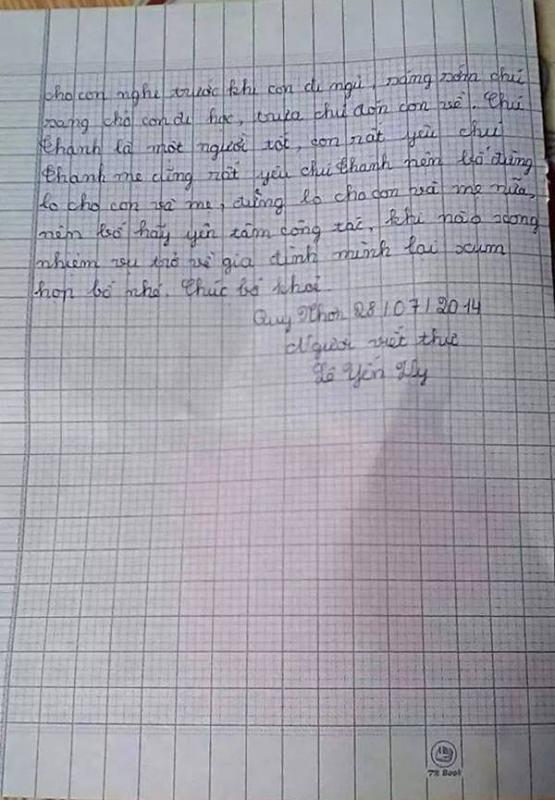 cho con nghe trước khi con đi ngủ, sáng sớm chú
sang chở con đi học, trưa chú đón con về. Chú
thanh là một người tốt, con rất yêu chú
thanh mẹ cũng rất yêu chú thanh nên bố đừng
lo cho con và mẹ, đừng lo cho con và mẹ nữa,
nên bố hãy yên tâm công tác, khi nào xong
nhiệm vụ trở về gia đình mình lại xum
họp bố nhé. Chúc bố khỏe
Quy Nhơn 28/07/2014
Người viết thư
Lê Yến Ly
72 Book